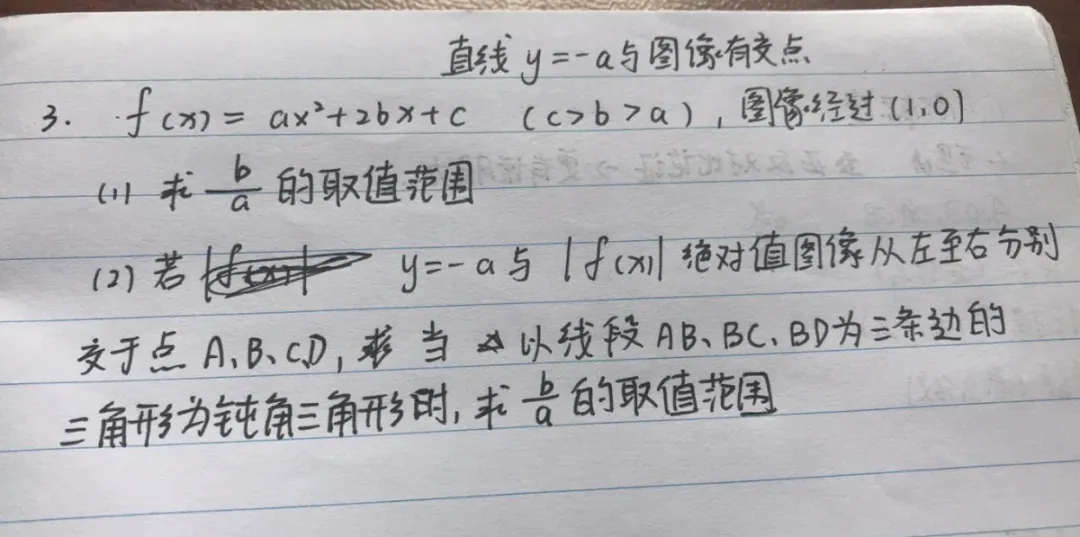 直线 y=-a与图像有交点
3. f(x)= ax²+2bx+c (c>b>a), 图像经过(1,0)
(1) 求 b/a 的取值范围
(2) 若 y=-a与 |f(x)| 绝对值图像从左至右分别
交于点 A、B、C、D, 求 当 以线段AB、BC、BD为三条边的
三角形为钝角三角形时, 求 b/a 的取值范围